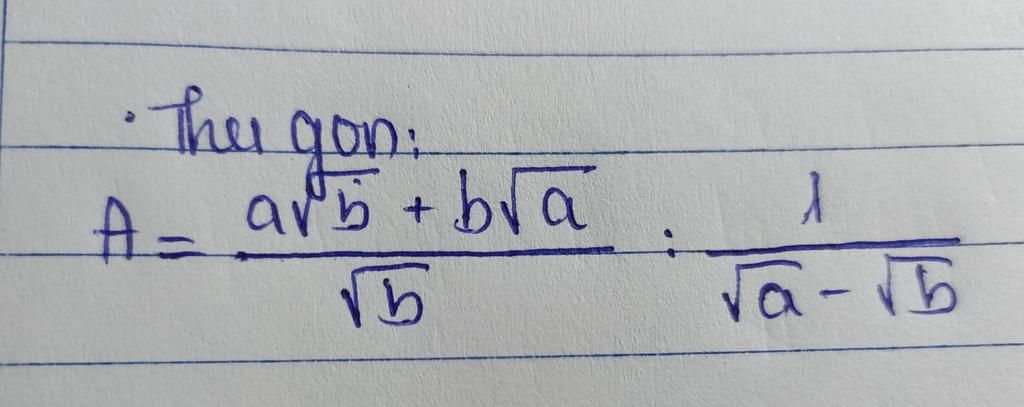 · Thu gọn:
A = \frac{a\sqrt{b} + b\sqrt{a}}{\sqrt{b}} : \frac{1}{\sqrt{a} - \sqrt{b}}